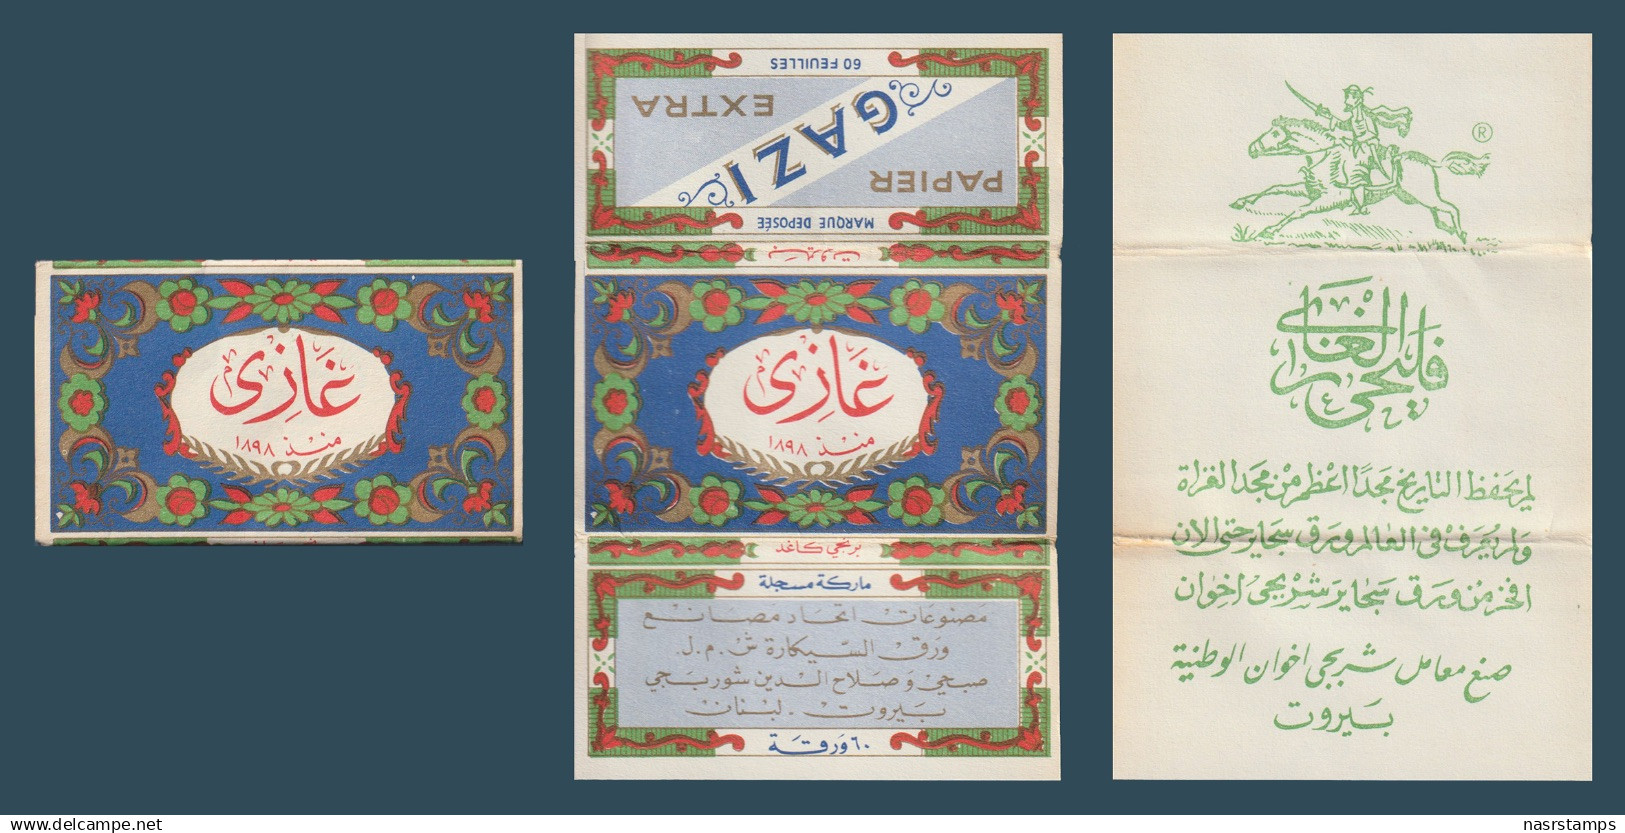 غازي
منذ ١٨٩٨
60 FEUILLES
PAPIER
GAZI
EXTRA
MARQUE DEPOSÉE
بيروت
غازي
منذ ١٨٩٨
برنجي كاغد
ماركة مسجلة
مصنوعات اتحاد مصانع
ورق السيكارة ش.م.ل.
صبحي وصلاح الدين شوربجي
بيروت - لبنان
٦٠ ورقة
®
فليحيى الغازي
لم يحفظ التاريخ مجداً اعظم من مجد الغزاة
ولم يعرف في العالم ورق سجاير حتى الان
افخر من ورق سجاير شربجي اخوان
صنع معامل شربجي اخوان الوطنية
بيروت
delcampe.net
nasrstamps